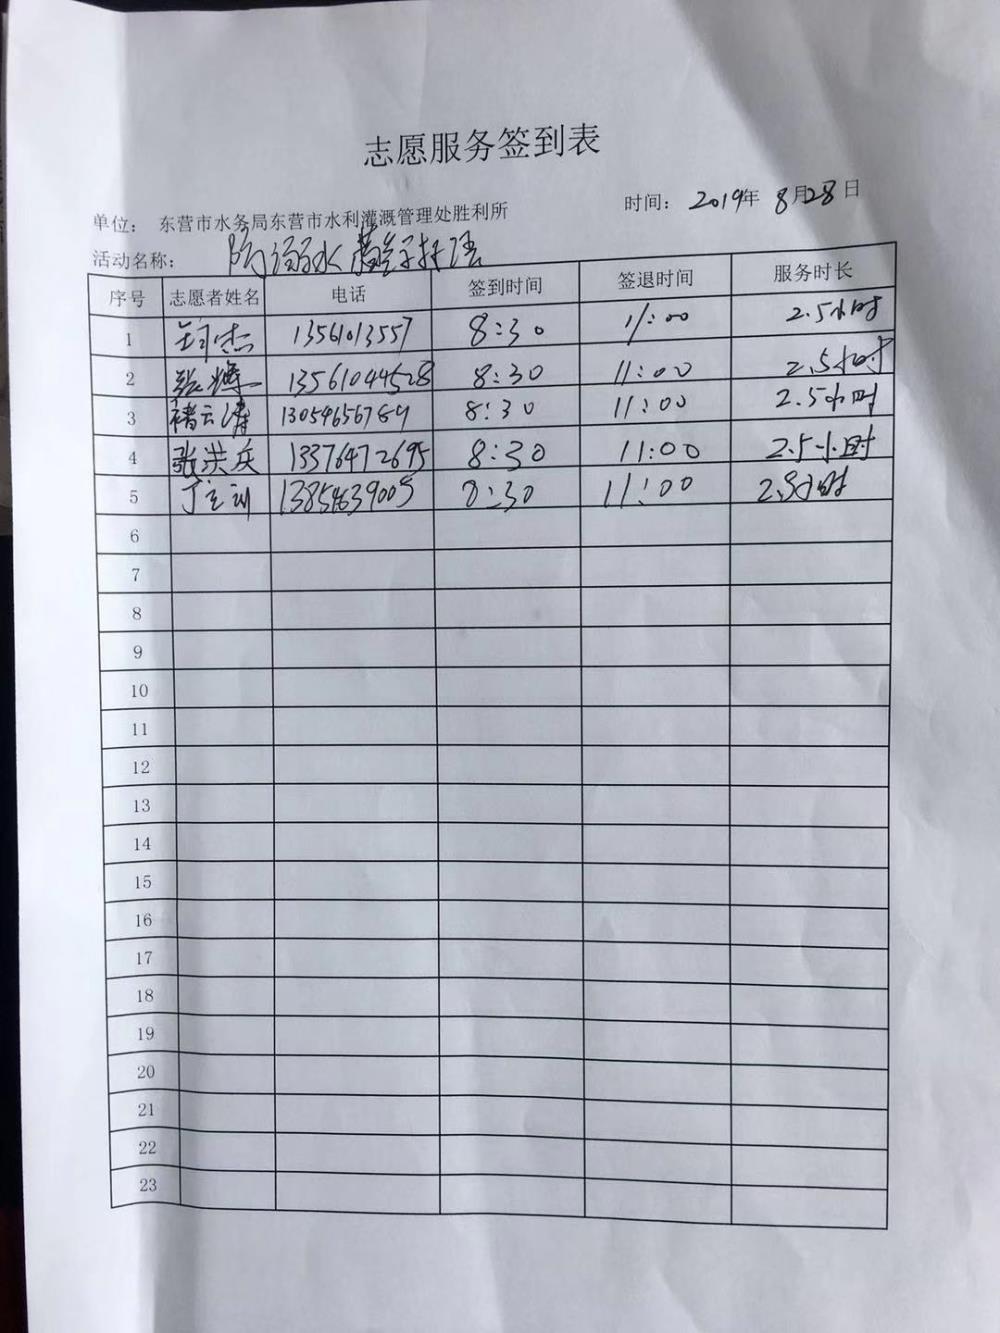 志愿服务签到表
单位： 东营市水务局东营市水利灌溉管理处胜利所 时间： 2019年 8月28日
活动名称： 防溺水
序号 志愿者姓名 电话 签到时间 签退时间 服务时长
1 杰 13561013557 8:30 11:00 2.5小时
2 张 13561044528 8:30 11:00 2.5小时
3 褚云涛 13054656789 8:30 11:00 2.5小时
4 张洪兵 13376472695 8:30 11:00 2.5小时
5 丁 13854639005 8:30 11:00 2.5小时
6
7
8
9
10
11
12
13
14
15
16
17
18
19
20
21
22
23